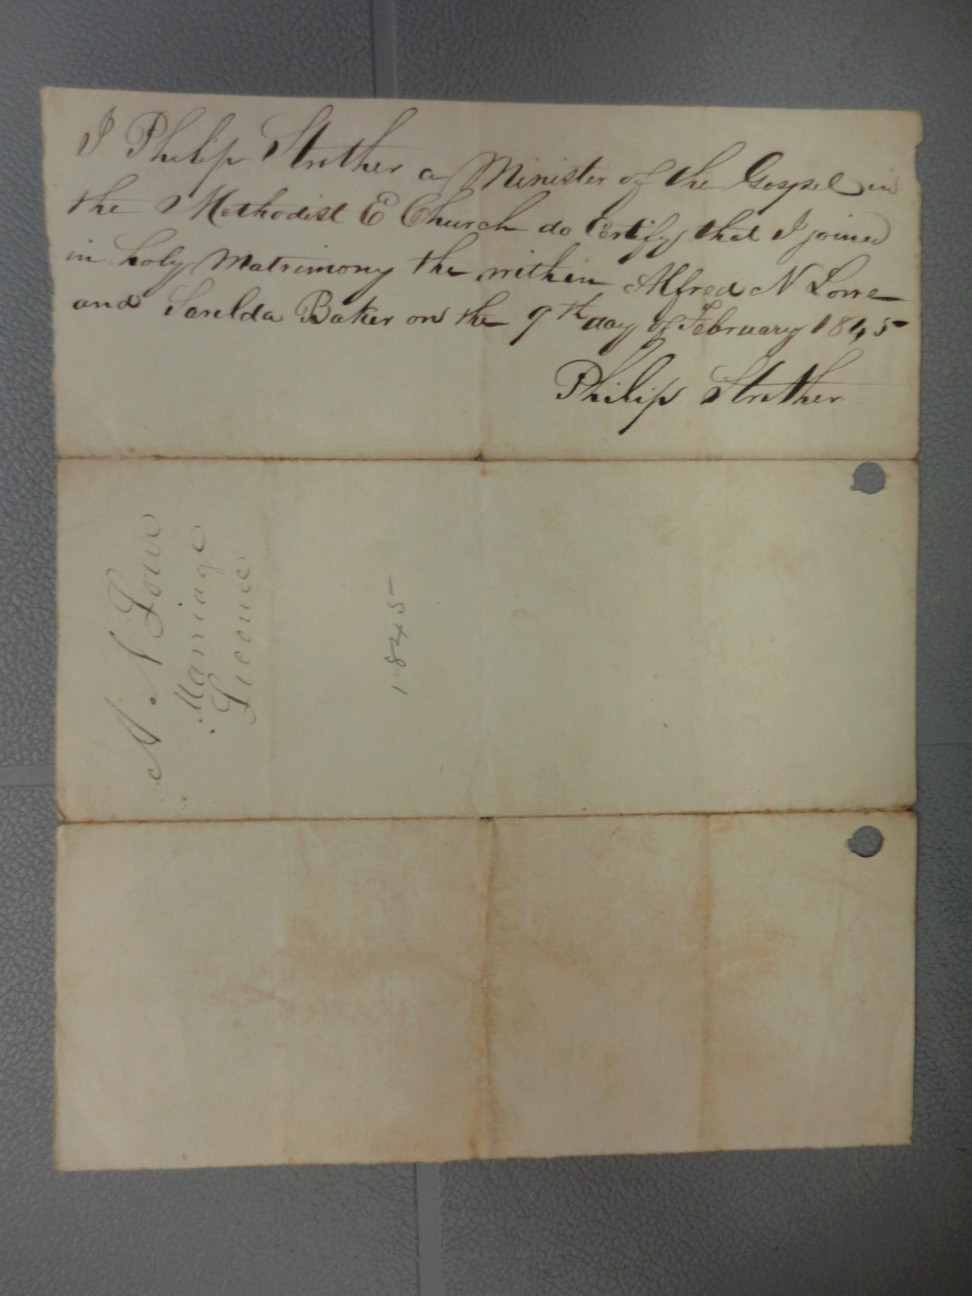 I Philip Strother a Minister of the Gospel in
the Methodist E Church do Certify that I joined
in holy Matrimony the within Alfred N Lowe
and Serelda Baker on the 9th day of February 1845
Philip Strother
A N Lowe
Marriage
Licence
1845